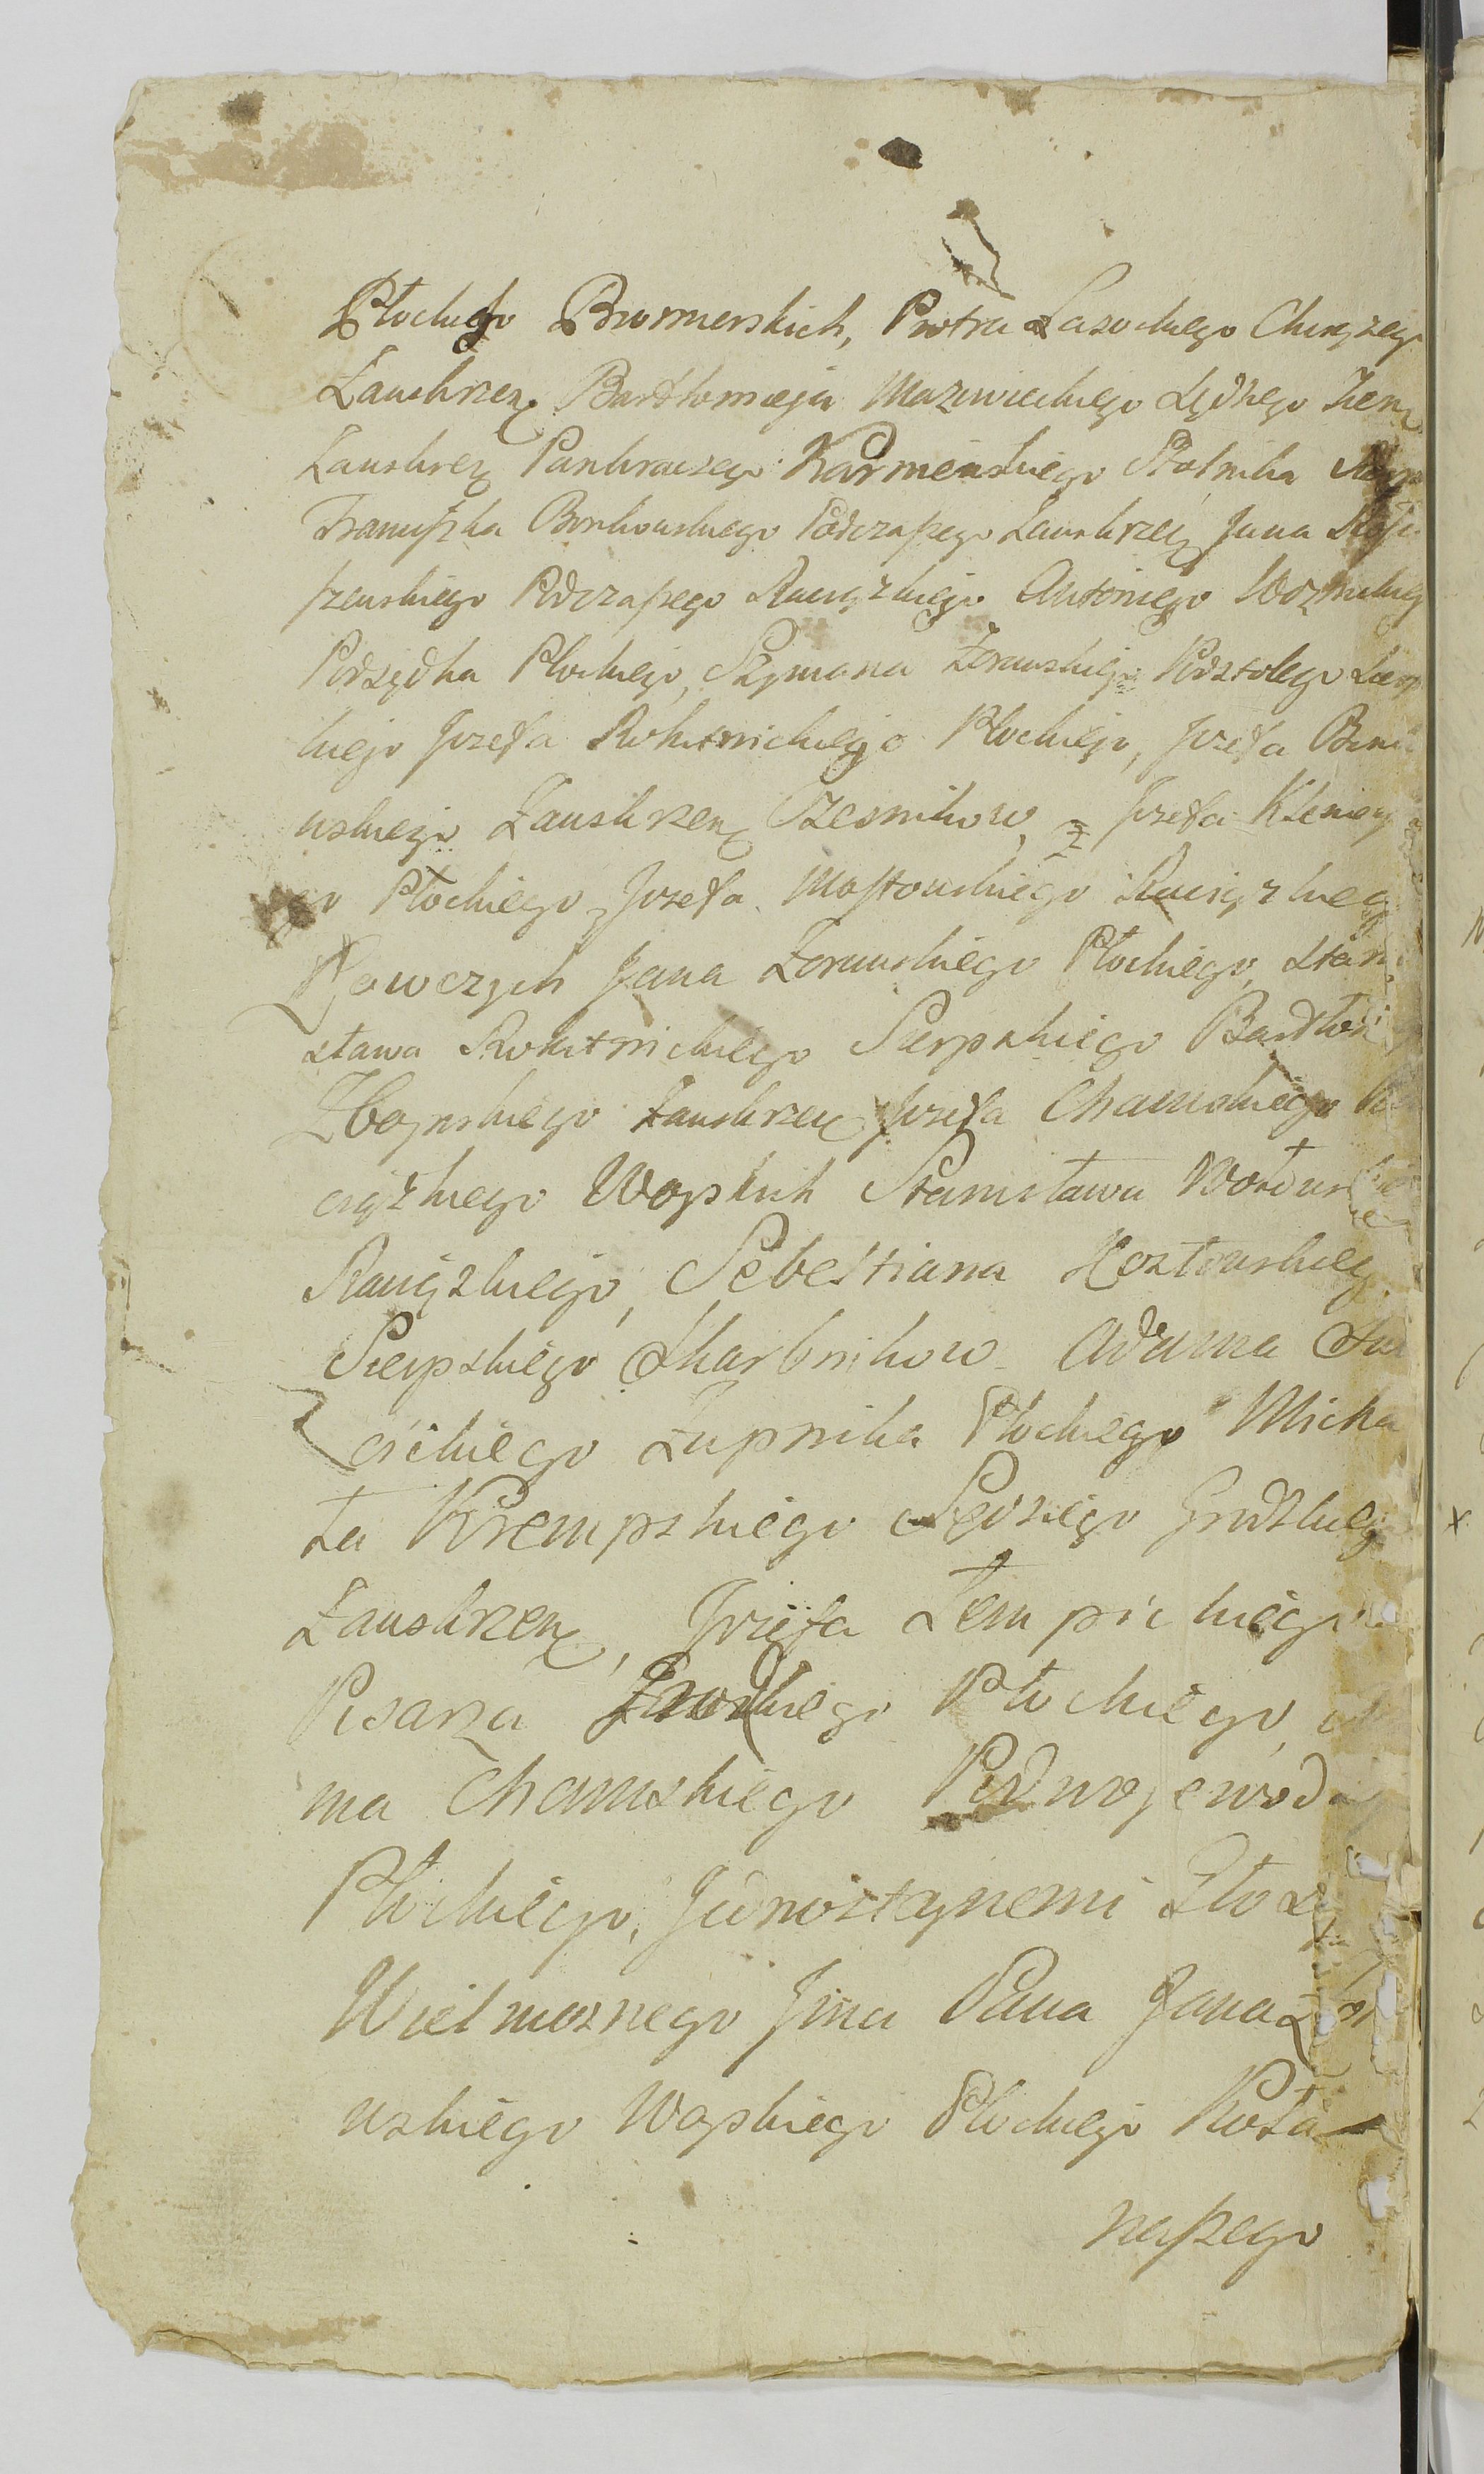 Płockiego Bromierskich, Piotra Lasockiego Chorążego
Zawskrzen Bartłomieja Mazowieckiego Sędziego Ziem
Zawskrzen Pankracego Karmenskiego Stolnika
Franciszka Borkowskiego Podczaszego Zawskrzen Jana
szewskiego Podczaszego Raciązkiego Antoniego
Podsędka Płockiego, Szymona Zorawskiego Podstolego Sierp
skiego Jozefa Rokitnickiego Płockiego, Jozefa
wskiego Zawskrzen Czesnikow, Jozefa
go Płockiego, Jozefa Mostowskiego Raciązkieg
Łowczych Jana Zorawskiego Płockiego, Stani
sława Rokitnickiego Sierpskiego Bartłom
Zboinskiego Zawskrzen Jozefa Chamskiego Ra
ciązkiego Woyskich Stanisława
Raciązkiego, Sebestiana Kozłowskieg
Sierpskiego Skarbnikow Adama
cickiego Zupnika Płockiego Micha
ła Krempskiego Sędziego Grodzkieg
Zawskrzen, Jozefa Lempickiego
Pisarza Grodzkiego Płockiego,
ma Chamskiego Podwojewoda
Płockiego, Jednostaynemi Głos
Wielmoznego Jmci Pana Jana Zor
wskiego Woyskiego Płockiego Koła
naszego